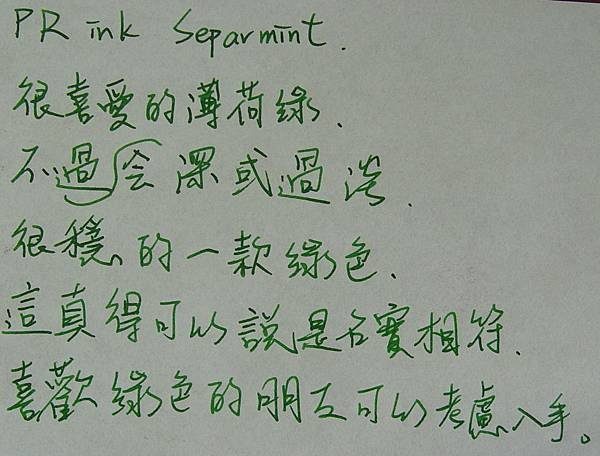 PR ink Separmint.
很喜愛的薄荷綠.
不過会深或過淡.
很穩的一款綠色.
這真得可以說是名實相符.
喜歡綠色的朋友可以考慮入手。